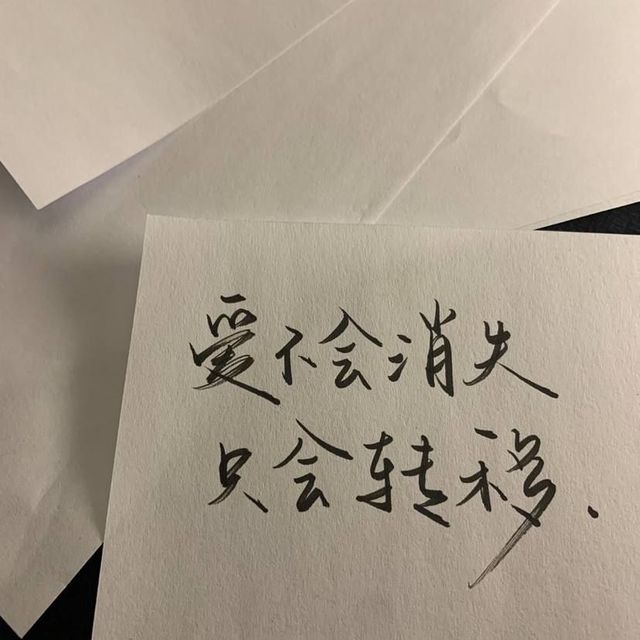 爱不会消失
只会转移.